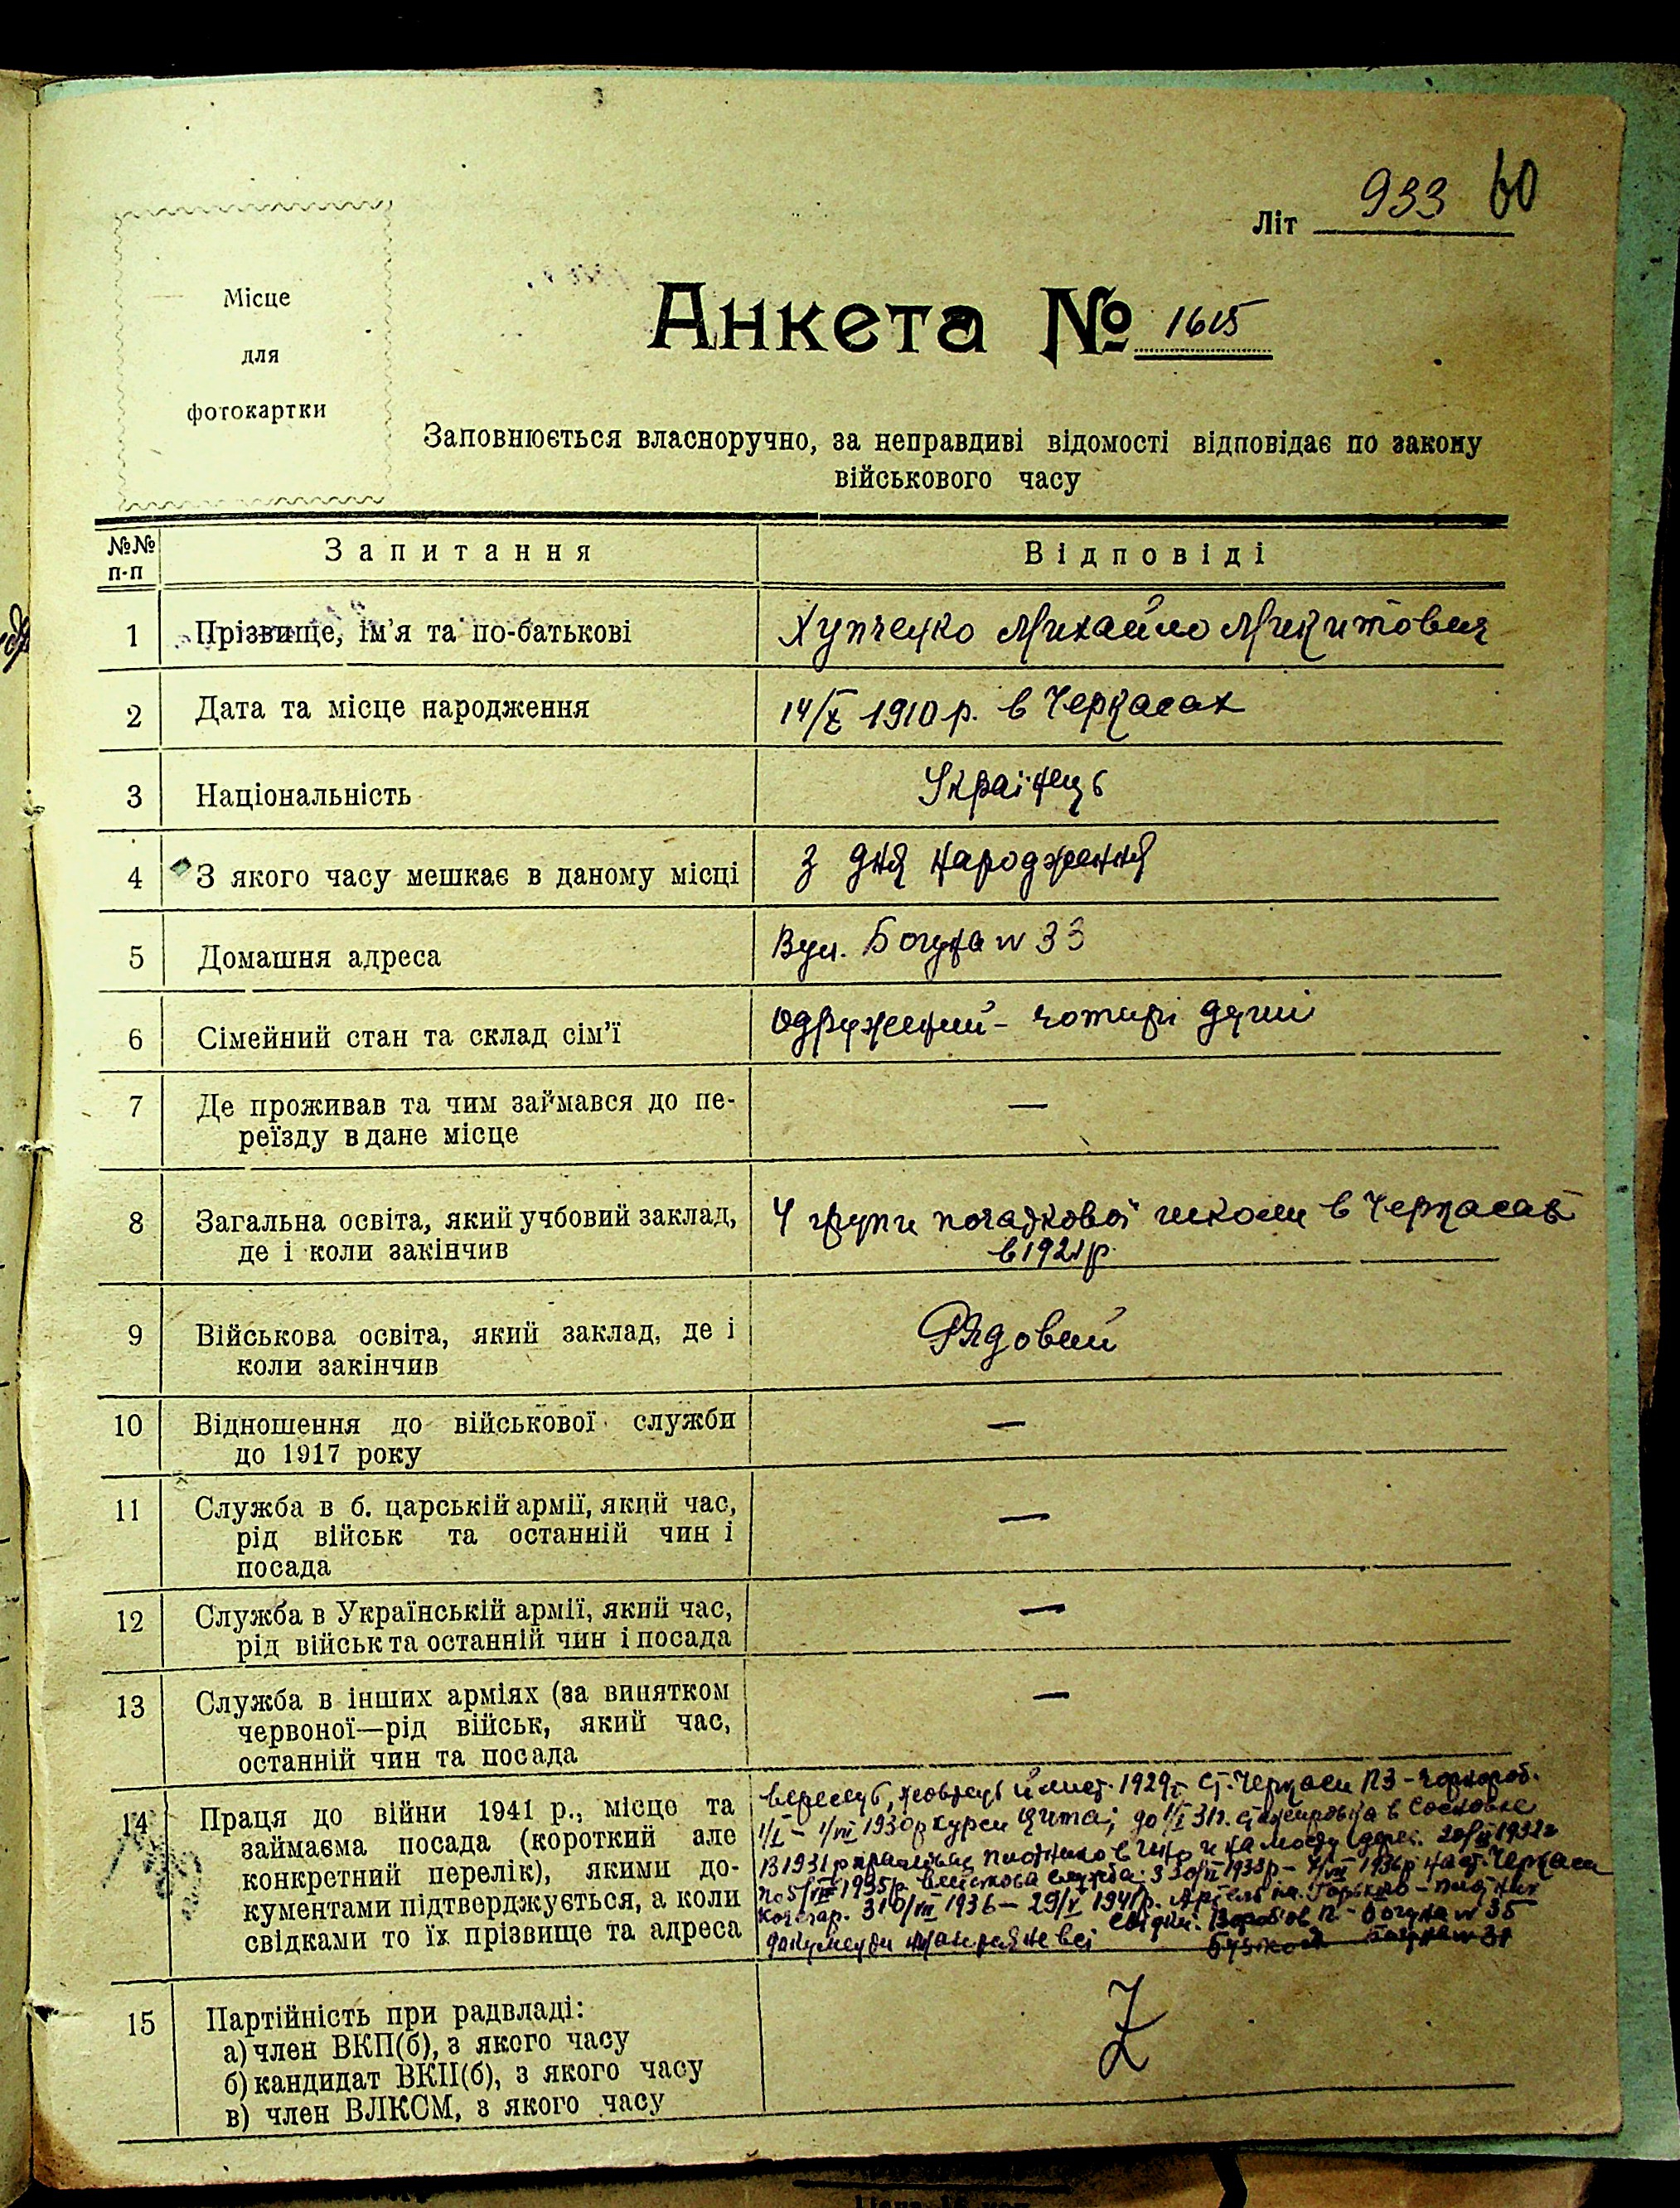 933 60
Літ
Місце
для
фотокартки
Анкета № 1615
Заповнюється власноручно, за неправдиві відомості відповідає по закону
військового часу
№№ п-п
Запитання
Відповіді
1
Прізвище, ім'я та по-батькові
Хупченко Михайло Микитович
2
Дата та місце народження
14/X 1910 р. в Черкасах
3
Національність
Українець
4
З якого часу мешкає в даному місці
З дня народження
5
Домашня адреса
Вул. Богуна № 33
6
Сімейний стан та склад сім'ї
Одружений - чотирі душі
7
Де проживав та чим займався до пе-
реїзду в дане місце
—
8
Загальна освіта, який учбовий заклад,
де і коли закінчив
4 групи початкової школи в Черкасах
в 1921 р.
9
Військова освіта, який заклад, де і
коли закінчив
Рядовий
10
Відношення до військової служби
до 1917 року
—
11
Служба в б. царській армії, який час,
рід військ та останній чин і
посада
—
12
Служба в Українській армії, який час,
рід військ та останній чин і посада
—
13
Служба в інших арміях (за винятком
червоної—рід військ, який час,
останній чин та посада
—
14
Праця до війни 1941 р., місце та
займаєма посада (короткий але
конкретний перелік), якими до-
кументами підтверджується, а коли
свідками то їх прізвище та адреса
Вересень, жовтень й лист. 1929 р. ст. Черкаси ПЗ - чорнороб.
1/I - 1930 р курси до в Сосновке
В 1931 р працював плотником 1932
по 5/VIII 1935 р. військова служба. З 1936 р на ст. Черкаси
Кочегар. З 10/VII 1936 - 29/V 1941 р. Артель ім. Горького -
документи не всі Свідки. Воробйов П. - Богуна № 35
Богуна № 31
15
Партійність при радвладі:
а) член ВКП(б), з якого часу
б) кандидат ВКП(б), з якого часу
в) член ВЛКСМ, з якого часу
Z